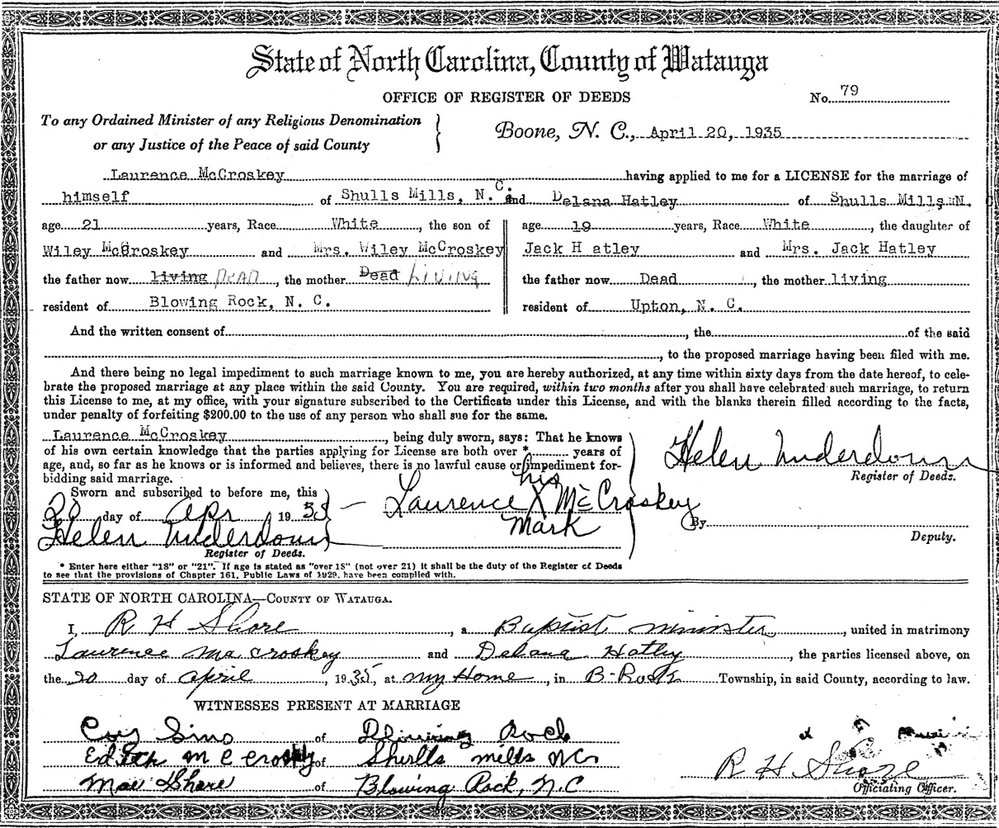 State of North Carolina, County of Watauga
OFFICE OF REGISTER OF DEEDS
No. 79
To any Ordained Minister of any Religious Denomination
or any Justice of the Peace of said County
Boone, N. C., April 20, 1935
Laurence McCroskey having applied to me for a LICENSE for the marriage of
himself of Shulls Mills, N. C. and Delana Hatley of Shulls Mills N. C
age 21 years, Race White, the son of
Wiley McCroskey and Mrs. Wiley McCroskey
the father now living DEAD, the mother Dead LIVING
resident of Blowing Rock, N. C.
age 19 years, Race White, the daughter of
Jack H atley and Mrs. Jack Hatley
the father now Dead, the mother living
resident of Upton, N. C.
And the written consent of, the of the said
, to the proposed marriage having been filed with me.
And there being no legal impediment to such marriage known to me, you are hereby authorized, at any time within sixty days from the date hereof, to cele-
brate the proposed marriage at any place within the said County. You are required, within two months after you shall have celebrated such marriage, to return
this License to me, at my office, with your signature subscribed to the Certificate under this License, and with the blanks therein filled according to the facts,
under penalty of forfeiting $200.00 to the use of any person who shall sue for the same.
Laurence McCroskey, being duly sworn, says: That he knows
of his own certain knowledge that the parties applying for License are both over * years of
age, and, so far as he knows or is informed and believes, there is no lawful cause or impediment for-
bidding said marriage.
Sworn and subscribed to before me, this
20 day of Apr 1935
Helen Underdown
Register of Deeds.
his
Laurence X McCroskey
Mark
Helen Underdown
Register of Deeds.
By
Deputy.
* Enter here either "18" or "21". If age is stated as "over 18" (not over 21) it shall be the duty of the Register of Deeds
to see that the provisions of Chapter 161, Public Laws of 1929, have been complied with.
STATE OF NORTH CAROLINA—COUNTY OF WATAUGA.
I, R H Shore, a Baptist minister, united in matrimony
Laurence Mc Croskey and Delana Hatley, the parties licensed above, on
the 20 day of April, 1935, at my Home, in B-Rock Township, in said County, according to law.
WITNESSES PRESENT AT MARRIAGE
Sims of Rock
Mc Croskey of Shulls mills NC
Mae Shore of Blowing Rock, N.C
R H Shore
Officiating Officer.